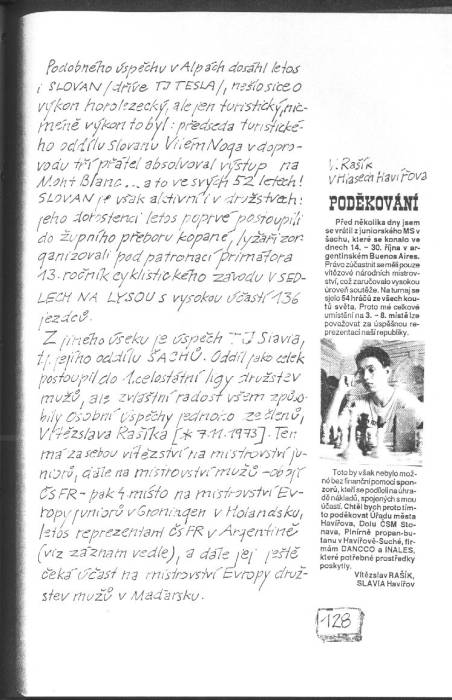 Podobného úspěchu v Alpách dosáhl letos
i SLOVAN /dříve TJ TESLA/, nešlo sice o
výkon horolezecký, ale jen turistický, nic-
méně výkon to byl: předseda turistické-
ho oddílu Slovanu Vilém Noga v dopro-
vodu tří přátel absolvoval výstup na
Mont Blanc... a to ve svých 52 letech!
SLOVAN je však aktivní i v družstvech:
jeho dorostenci letos poprvé postoupili
do župního přeboru kopané, lyžaři zor-
ganizovali pod patronací primátora
13. ročník cyklistického závodu V SED-
LECH NA LYSOU s vysokou účastí 136
jezdců.
Z jiného úseku je úspěch TJ Slavia,
tj. jejího oddílu ŠACHŮ. Oddíl jako celek
postoupil do 1. celostátní ligy družstev
mužů, ale zvláštní radost všem způso-
bily osobní úspěchy jednoho ze členů,
Vítězslava Rašíka [* 7.11.1973]. Ten
má za sebou vítězství na mistrovství ju-
niorů, dále na mistrovství mužů - obojí
ČSFR - pak 4. místo na mistrovství Ev-
ropy juniorů v Groningen v Holandsku,
letos reprezentant ČSFR v Argentině
(viz záznam vedle), a dále jej ještě
čeká účast na mistrovství Evropy druž-
stev mužů v Maďarsku.
V. Rašík
v Hlasech Havířova
PODĚKOVÁNÍ
Před několika dny jsem
se vrátil z juniorského MS v
šachu, které se konalo ve
dnech 14. - 30. října v ar-
gentinském Buenos Aires.
Právo zúčastnit se měli pouze
vítězové národních mistrov-
ství, což zaručovalo vysokou
úroveň soutěže. Na turnaj se
sjelo 64 hráčů ze všech kou-
tů světa. Proto mé celkové
umístění na 3. - 8. místě lze
považovat za úspěšnou re-
prezentaci naší republiky.
Toto by však nebylo mož-
no bez finanční pomoci spon-
zorů, kteří se podíleli na úhra-
dě nákladů, spojených s mou
účastí. Chtěl bych proto tím-
to poděkovat Úřadu města
Havířova, Dolu ČSM Sto-
nava, Plnírně propan-bu-
tanu v Havířově-Suché, fir-
mám DANCCO a INALES,
které potřebné prostředky
poskytly.
Vítězslav RAŠÍK,
SLAVIA Havířov
128